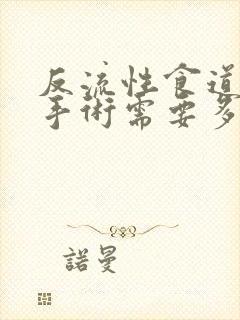 反流性食道
手術需要多
諾曼